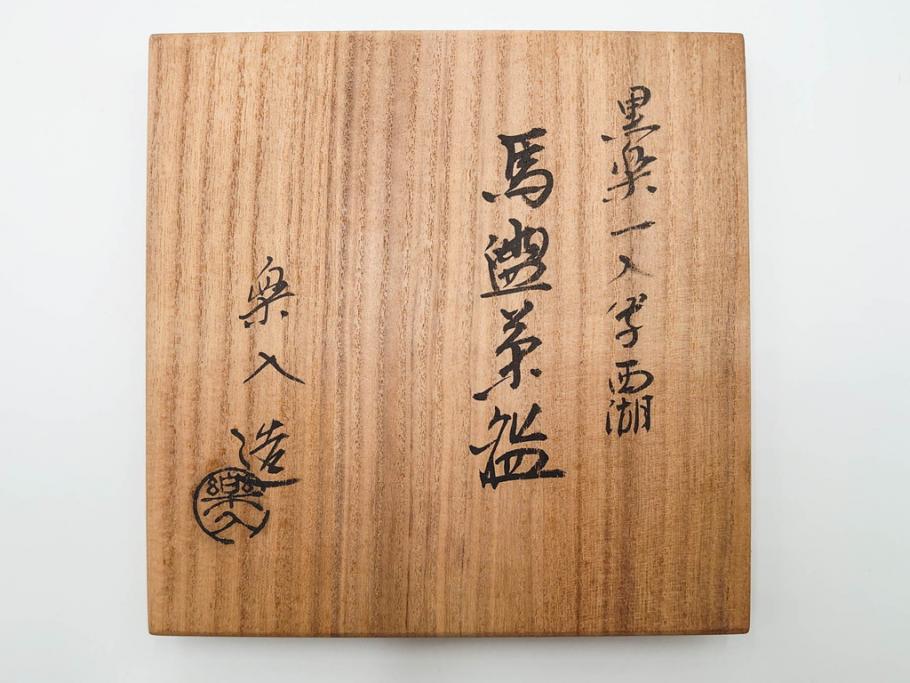 黒楽一入写西湖
馬盥茶盌
楽入造
樂入